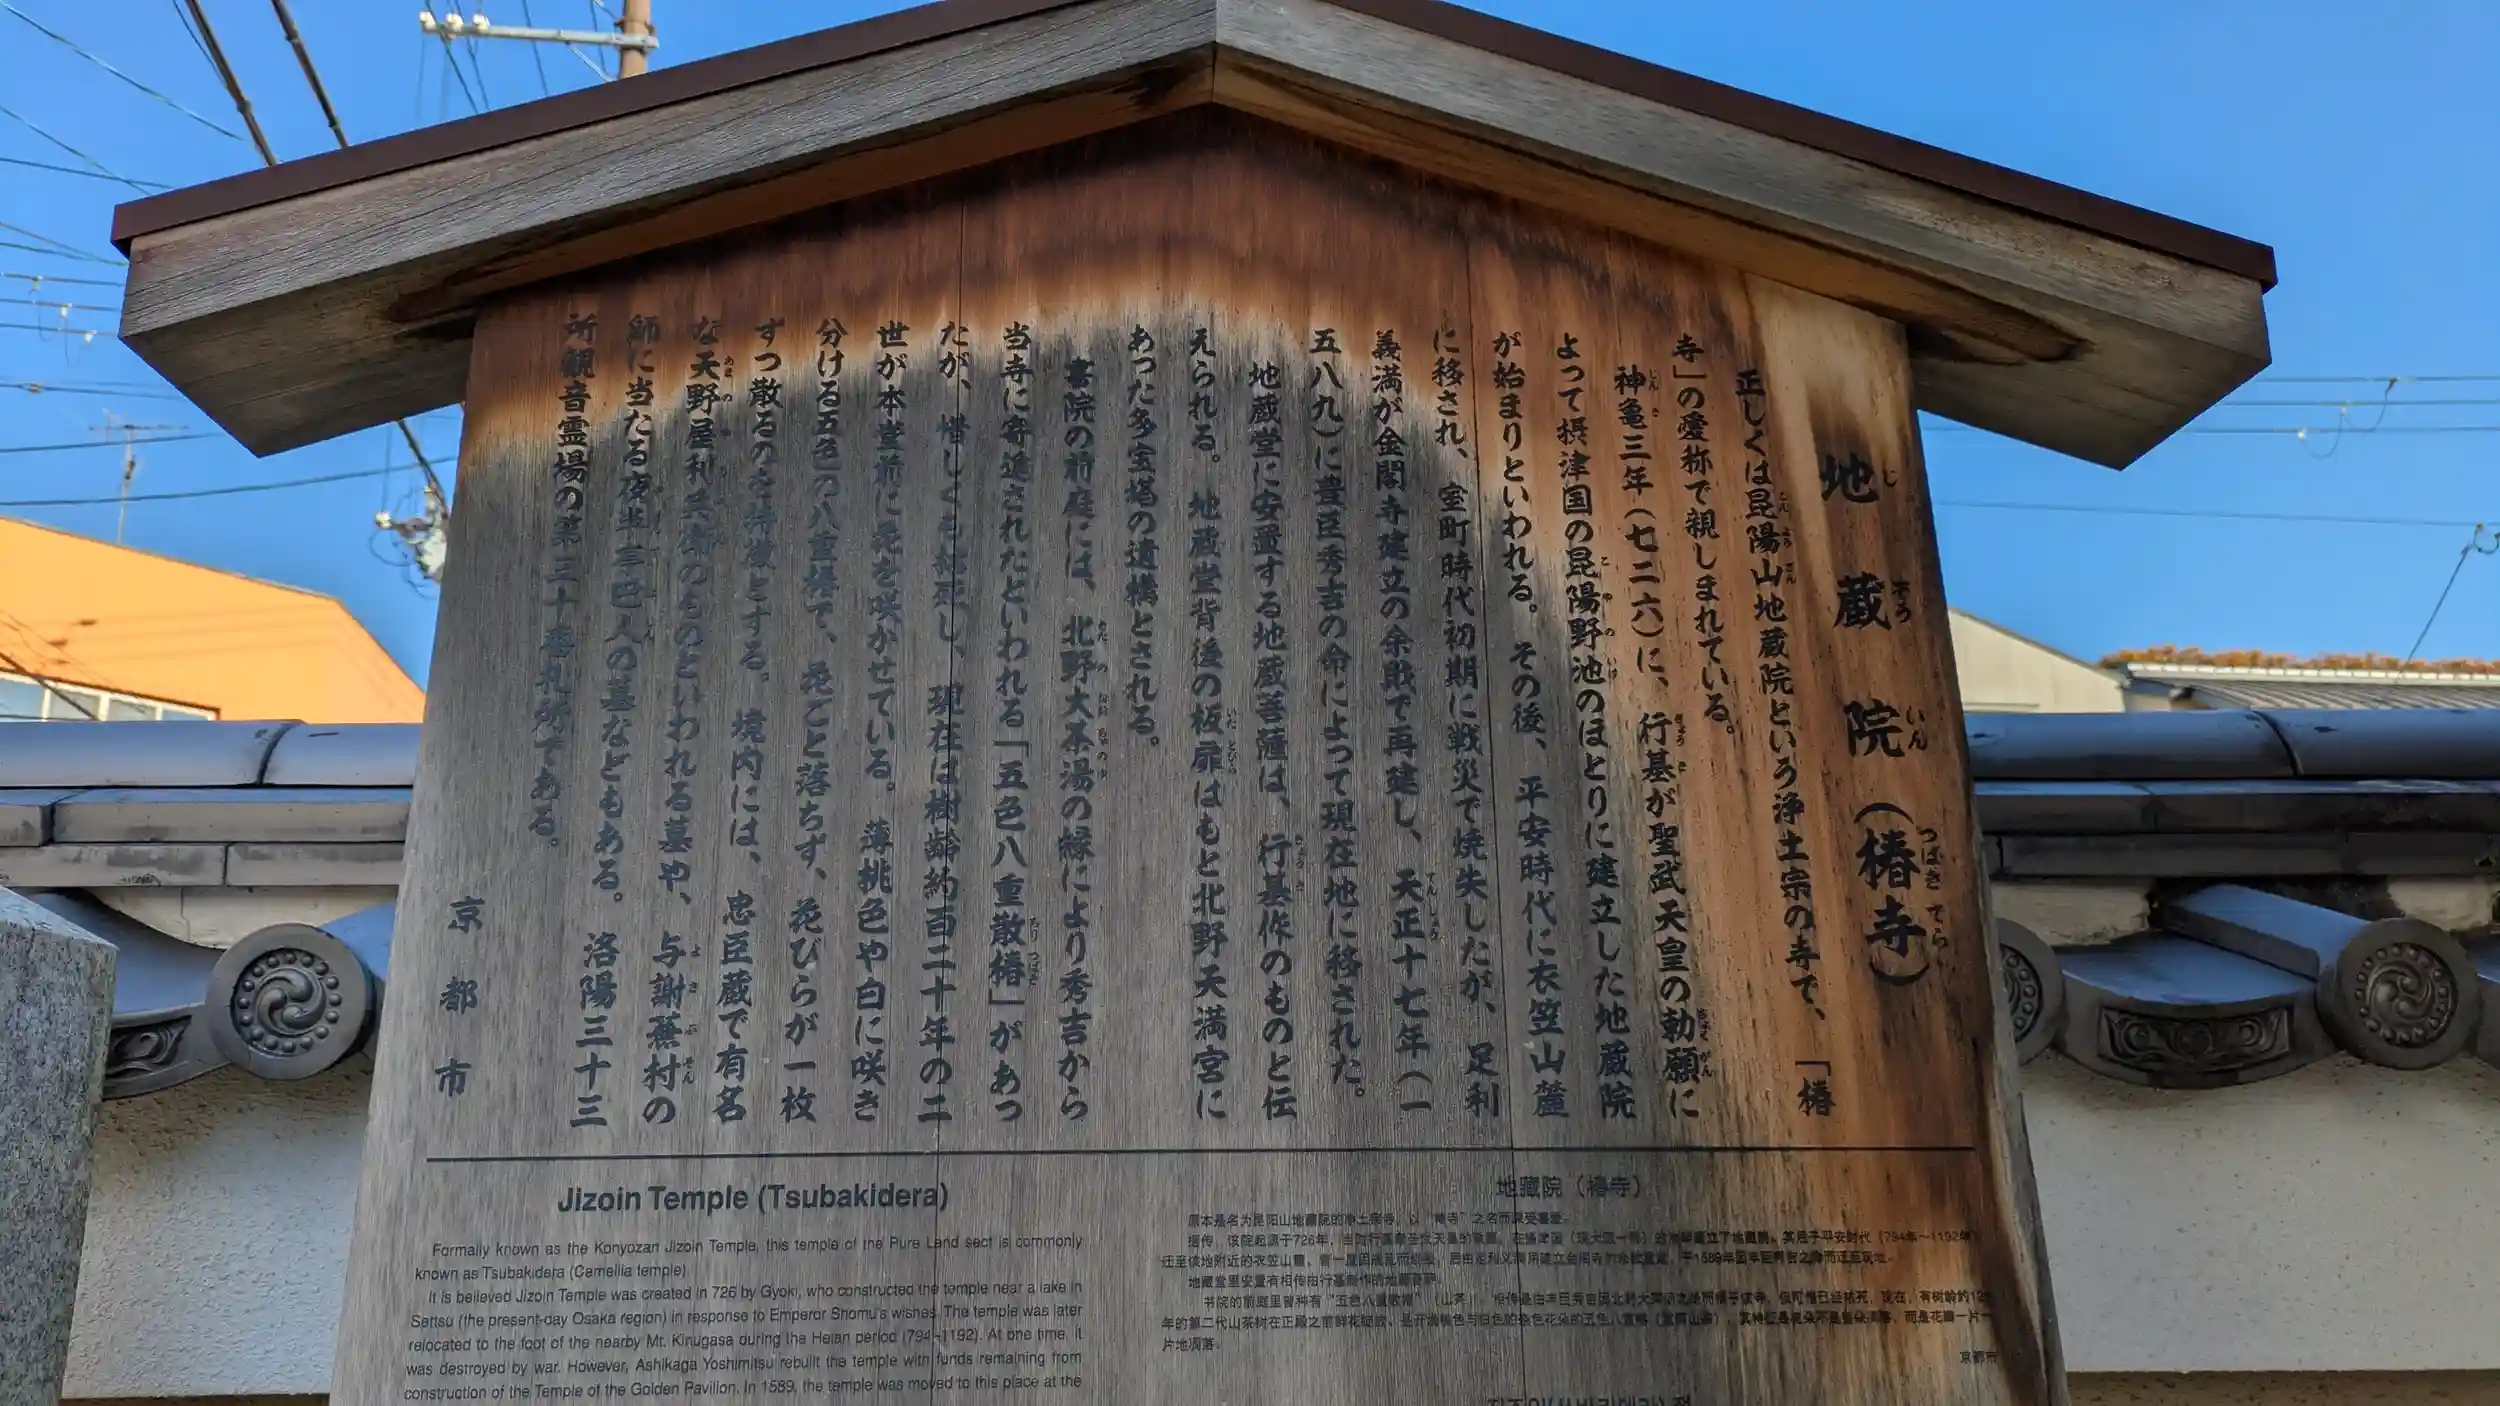 地蔵院（椿寺）
正しくは昆陽山地蔵院という浄土宗の寺で、「椿
寺」の愛称で親しまれている。
神亀三年（七二六）に、行基が聖武天皇の勅願に
よって摂津国の昆陽野池のほとりに建立した地蔵院
が始まりといわれる。その後、平安時代に衣笠山麓
に移され、室町時代初期に戦災で焼失したが、足利
義満が金閣寺建立の余財で再建し、天正十七年（一
五八九）に豊臣秀吉の命によって現在地に移された。
地蔵堂に安置する地蔵菩薩は、行基作のものと伝
えられる。地蔵堂背後の板扉はもと北野天満宮に
あった多宝塔の遺構とされる。
書院の前庭には、北野大茶湯の縁により秀吉から
当寺に寄進されたといわれる「五色八重散椿」があっ
たが、惜しくも枯死し、現在は樹齢約百二十年の二
世が本堂前に花を咲かせている。薄桃色や白に咲き
分ける五色の八重椿で、花ごと落ちず、花びらが一枚
ずつ散るのを特徴とする。境内には、忠臣蔵で有名
な天野屋利兵衛のものといわれる墓や、与謝蕪村の
師に当たる夜半亭巴人の墓などもある。洛陽三十三
所観音霊場の第三十番札所である。
京都市
Jizoin Temple (Tsubakidera)
Formally known as the Konyozan Jizoin Temple, this temple of the Pure Land sect is commonly
known as Tsubakidera (Camellia temple).
It is believed Jizoin Temple was created in 726 by Gyoki, who constructed the temple near a lake in
Settsu (the present-day Osaka region) in response to Emperor Shomu's wishes. The temple was later
relocated to the foot of the nearby Mt. Kinugasa during the Heian period (794-1192). At one time, it
was destroyed by war. However, Ashikaga Yoshimitsu rebuilt the temple with funds remaining from
construction of the Temple of the Golden Pavilion. In 1589, the temple was moved to this place at the
地藏院（椿寺）
原本是名为昆阳山地藏院的净土宗寺，以“椿寺”之名而深受喜爱。
地藏堂里安置有相传由行基制作的地藏菩萨。
片地凋落。
京都市